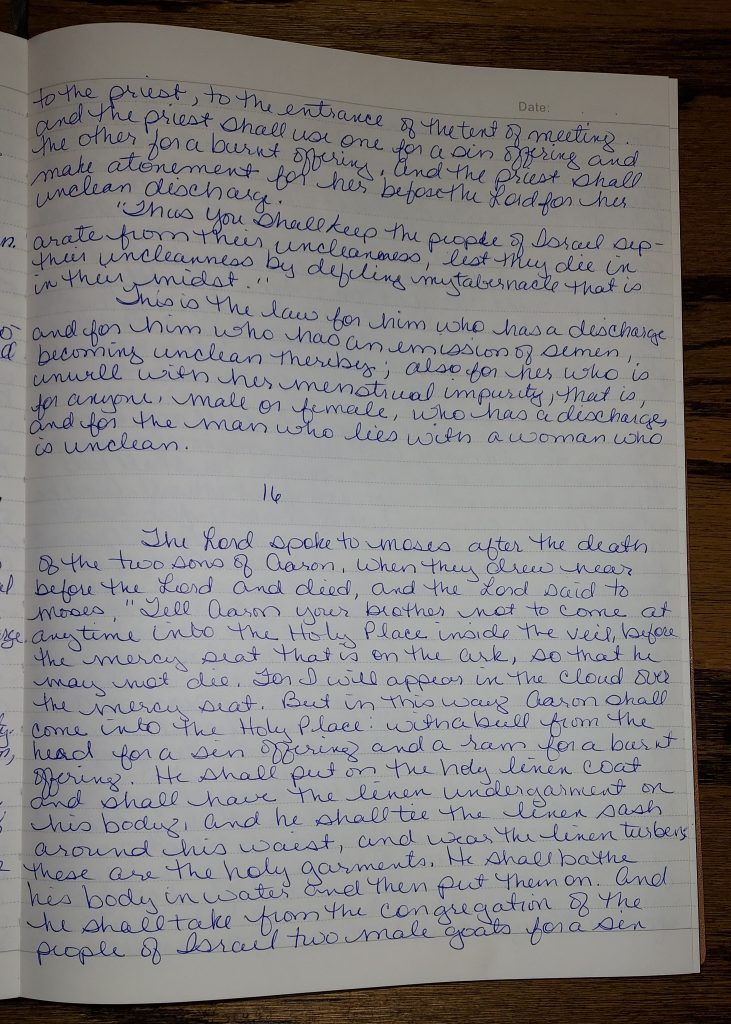 Date:
to the priest, to the entrance of the tent of meeting.
and the priest shall use one for a sin offering and
the other for a burnt offering. And the priest shall
make atonement for her before the Lord for her
unclean discharge.
"Thus you shall keep the people of Israel sep-
arate from their uncleanness, lest they die in
their uncleanness by defiling my tabernacle that is
in their midst."
This is the law for him who has a discharge
and for him who has an emission of semen,
becoming unclean thereby; also for her who is
unwell with her menstrual impurity, that is,
for anyone, male or female, who has a discharge,
and for the man who lies with a woman who
is unclean.
16
The Lord spoke to Moses after the death
of the two sons of Aaron, when they drew near
before the Lord and died, and the Lord said to
Moses, "Tell Aaron your brother not to come at
anytime into the Holy Place inside the veil, before
the mercy seat that is on the ark, so that he
may not die. For I will appear in the cloud over
the mercy seat. But in this way Aaron shall
come into the Holy Place: with a bull from the
herd for a sin offering and a ram for a burnt
offering. He shall put on the holy linen coat
and shall have the linen undergarment on
his body, and he shall tie the linen sash
around his waist, and wear the linen turban;
these are the holy garments. He shall bathe
his body in water and then put them on. And
he shall take from the congregation of the
people of Israel two male goats for a sin